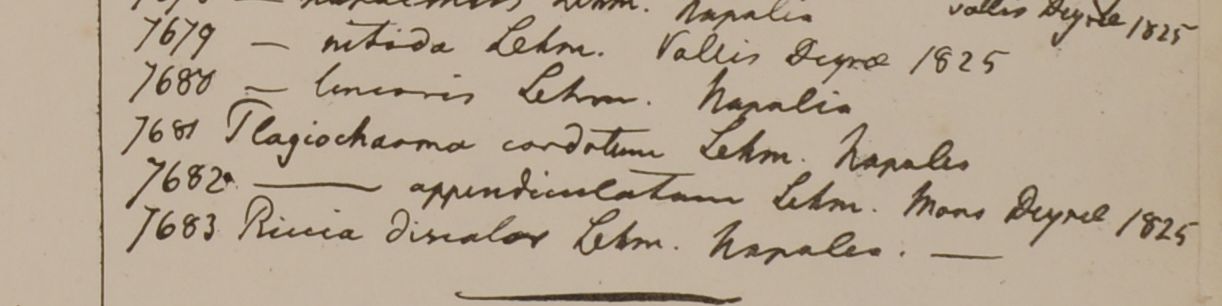 — Lehm. Napalia Vallis Deyrae 1825
7679 — nitida Lehm. Vallis Deyrae 1825
7680 — linearis Lehm. Napalia
7681 Plagiochasma cordatum Lehm. Napalia
7682 —— appendiculatum Lehm. Mons Deyrae 1825
7683 Riccia discolor Lehm. Napalia. —